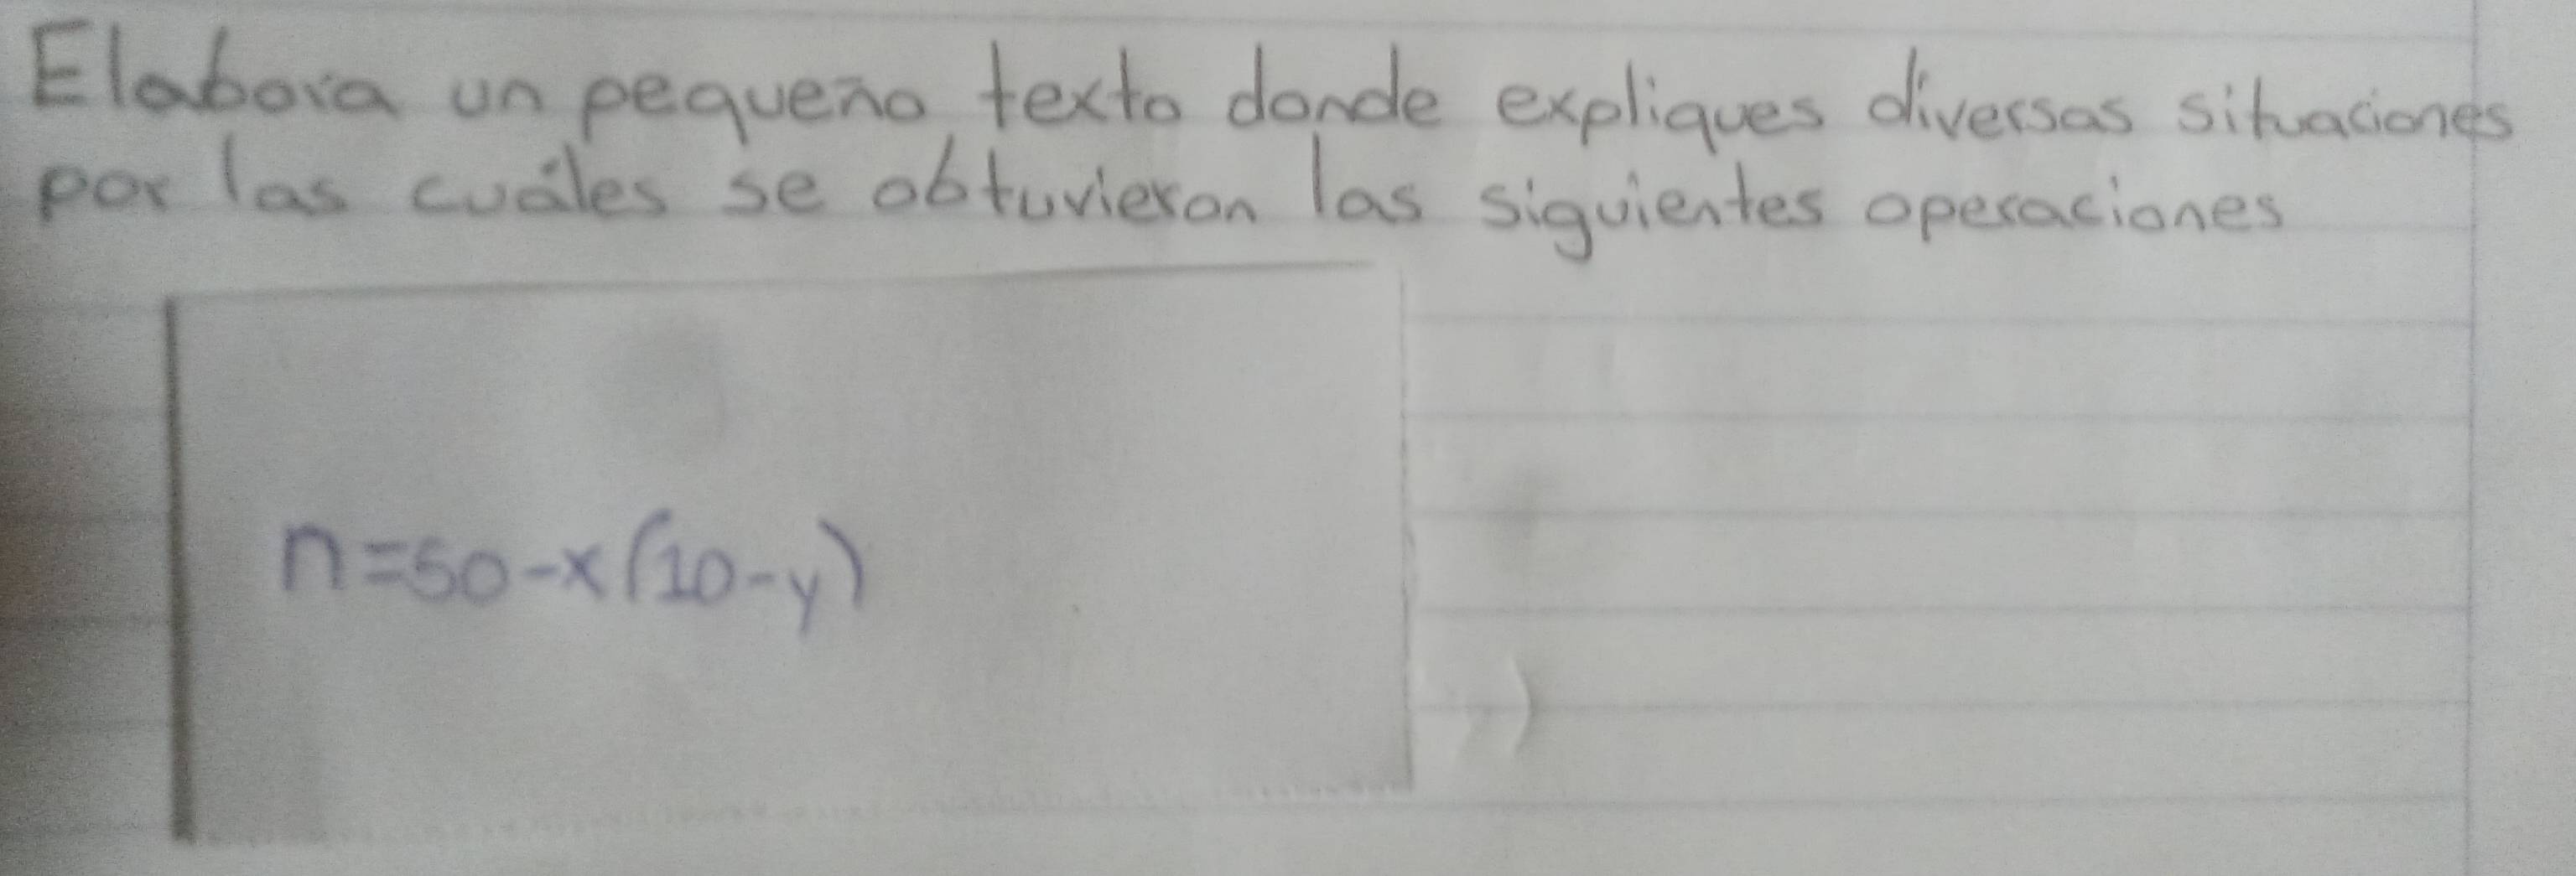 Elabora un pequeño texto donde expliques diversas situaciones
por las cuáles se obtuvieron las siguientes operaciones
n=50-x(10-y)